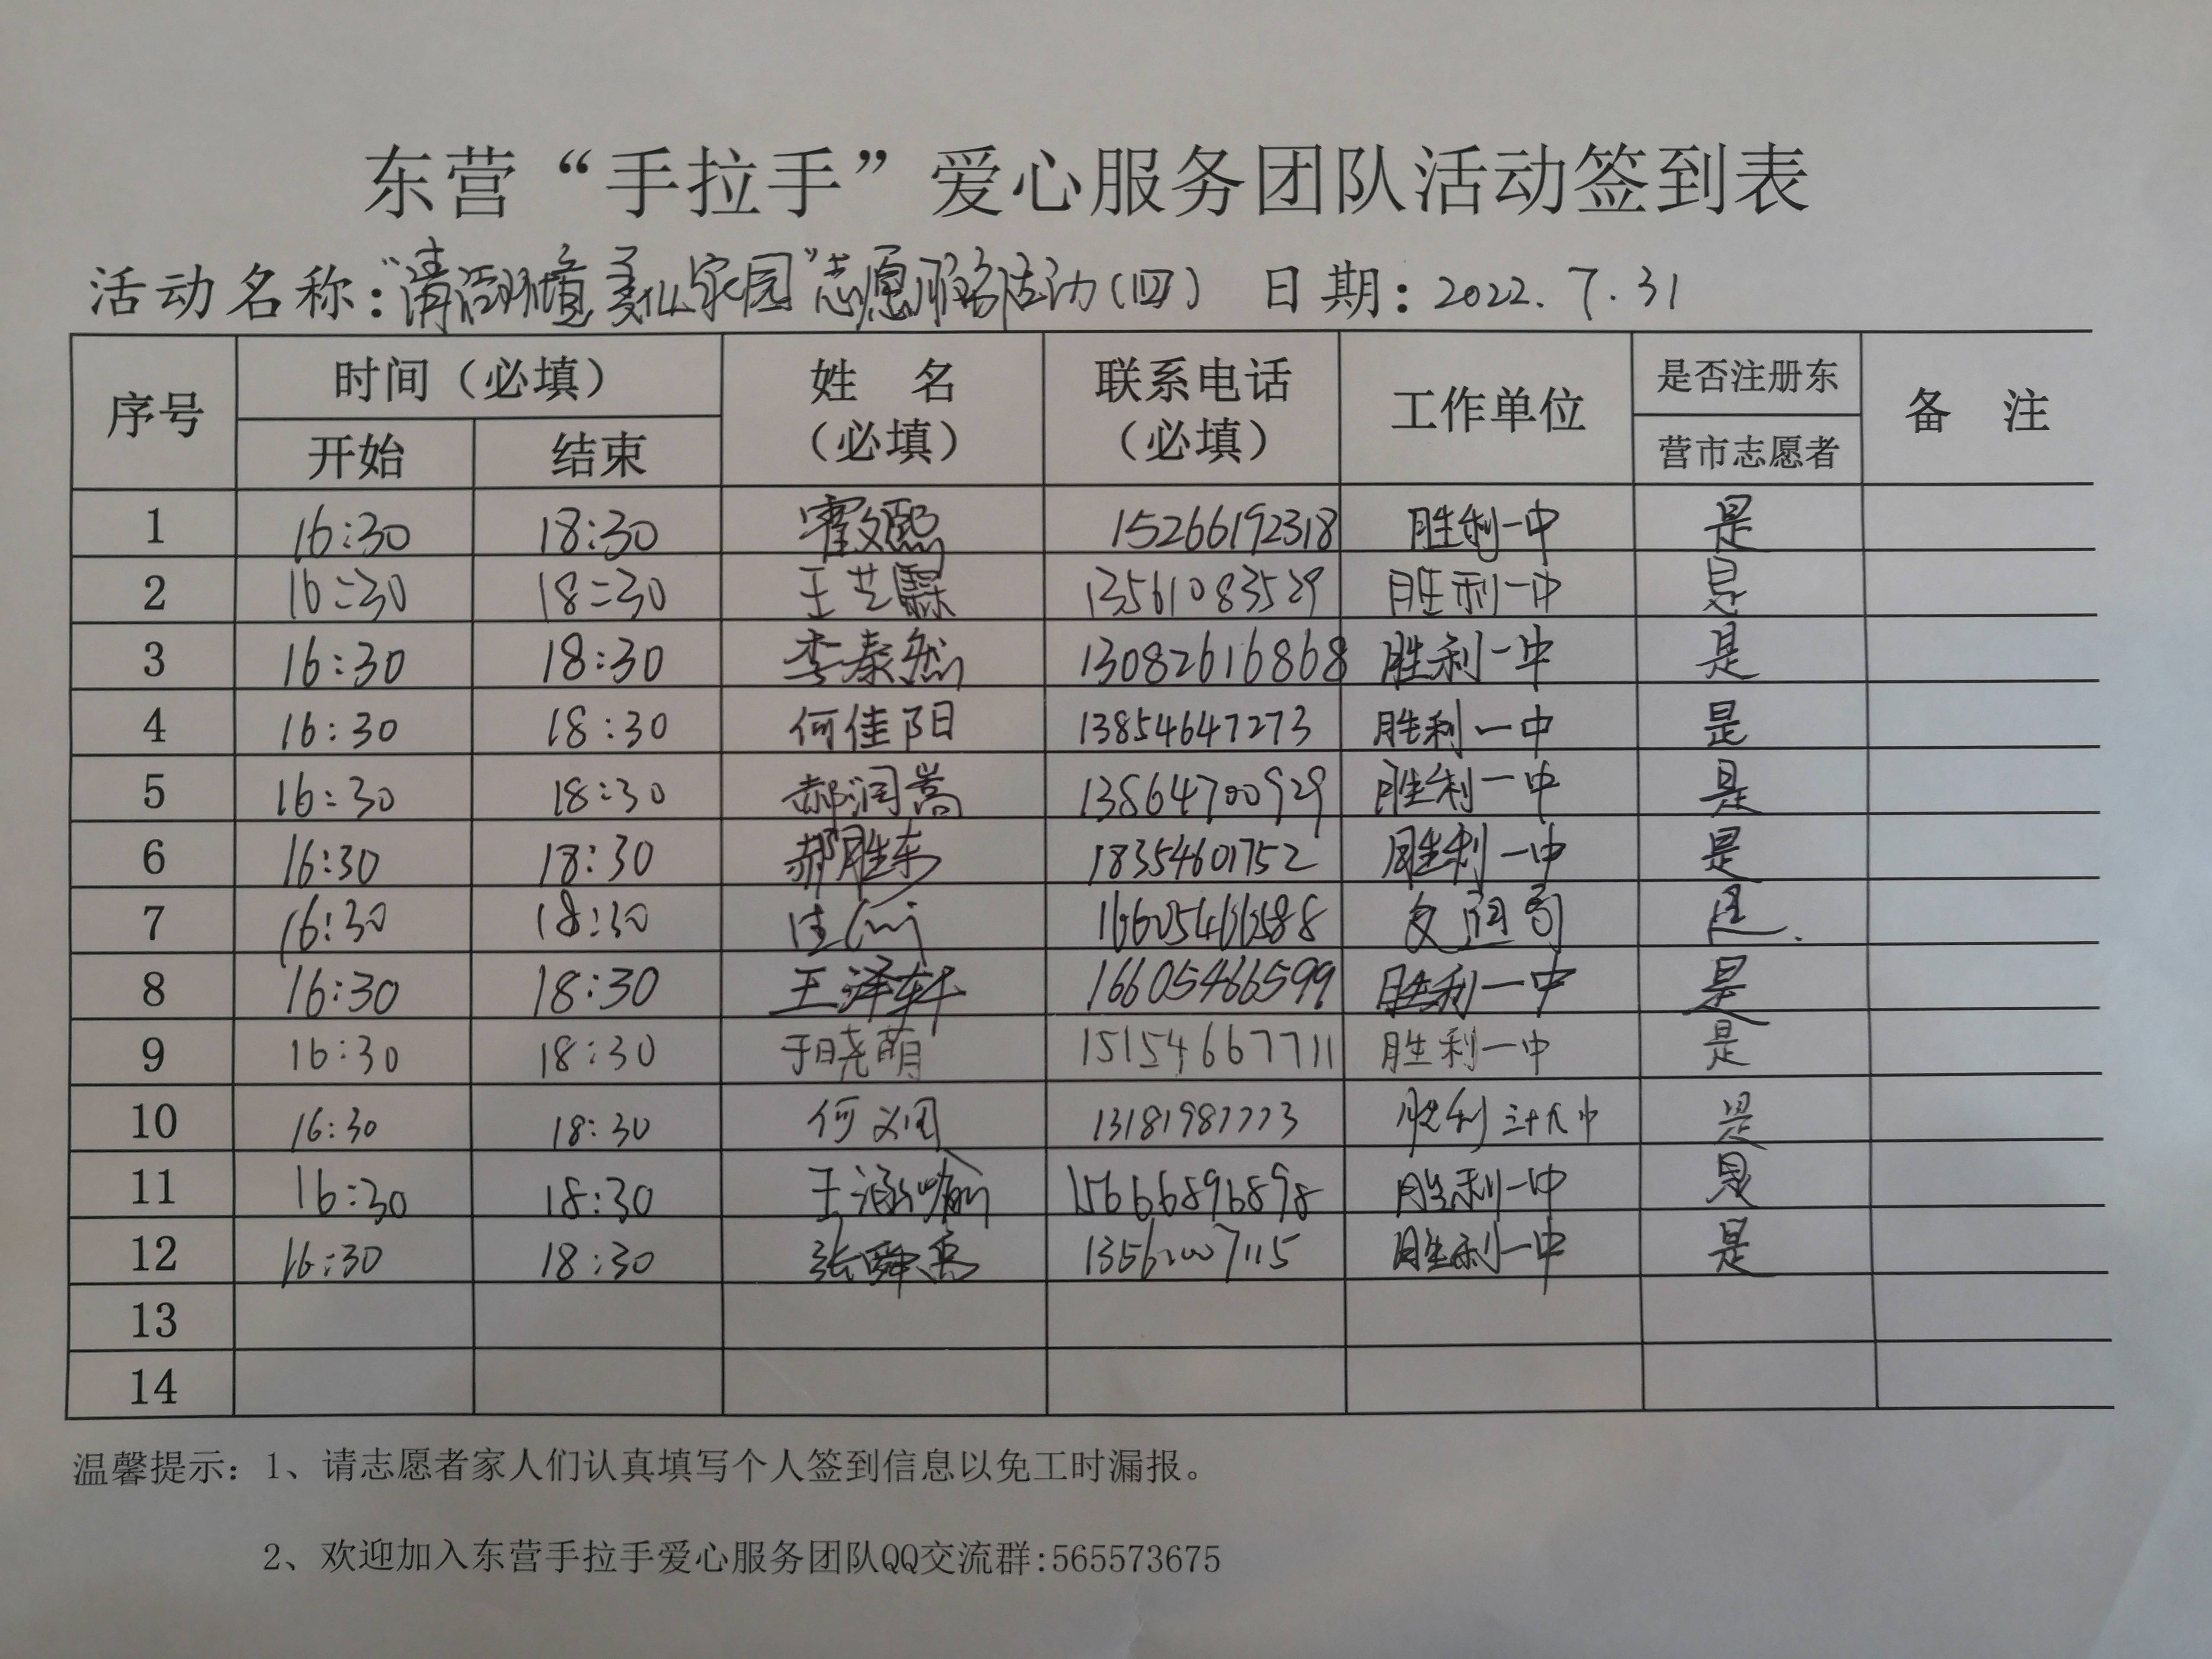 东营“手拉手”爱心服务团队活动签到表
活动名称：“清洁环境 美化家园”志愿服务活动(四) 日期：2022.7.31
序号 时间（必填） 姓 名（必填） 联系电话（必填） 工作单位 是否注册东营市志愿者 备 注
开始 结束
1 16:30 18:30 霍文熙 15266192318 胜利一中 是
2 16:30 18:30 王艺霖 13561083529 胜利一中 是
3 16:30 18:30 李泰然 13082616868 胜利一中 是
4 16:30 18:30 何佳阳 13854647273 胜利一中 是
5 16:30 18:30 郝润嵩 13864700929 胜利一中 是
6 16:30 18:30 郝胜东 18354601752 胜利一中 是
7 16:30 18:30 是.
8 16:30 18:30 王泽轩 16605466599 胜利一中 是
9 16:30 18:30 于晓萌 15154667711 胜利一中 是
10 16:30 18:30 何 13181987773 胜利三十九中 是
11 16:30 18:30 王涵喻 15666896898 胜利一中 是
12 16:30 18:30 张舜 胜利一中 是
13
14
温馨提示：1、请志愿者家人们认真填写个人签到信息以免工时漏报。
2、欢迎加入东营手拉手爱心服务团队QQ交流群:565573675